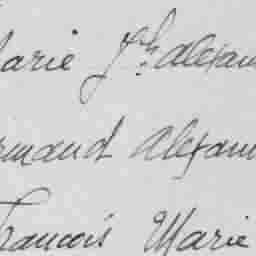 arie Jh alexan
rmand alexan
rancois Marie